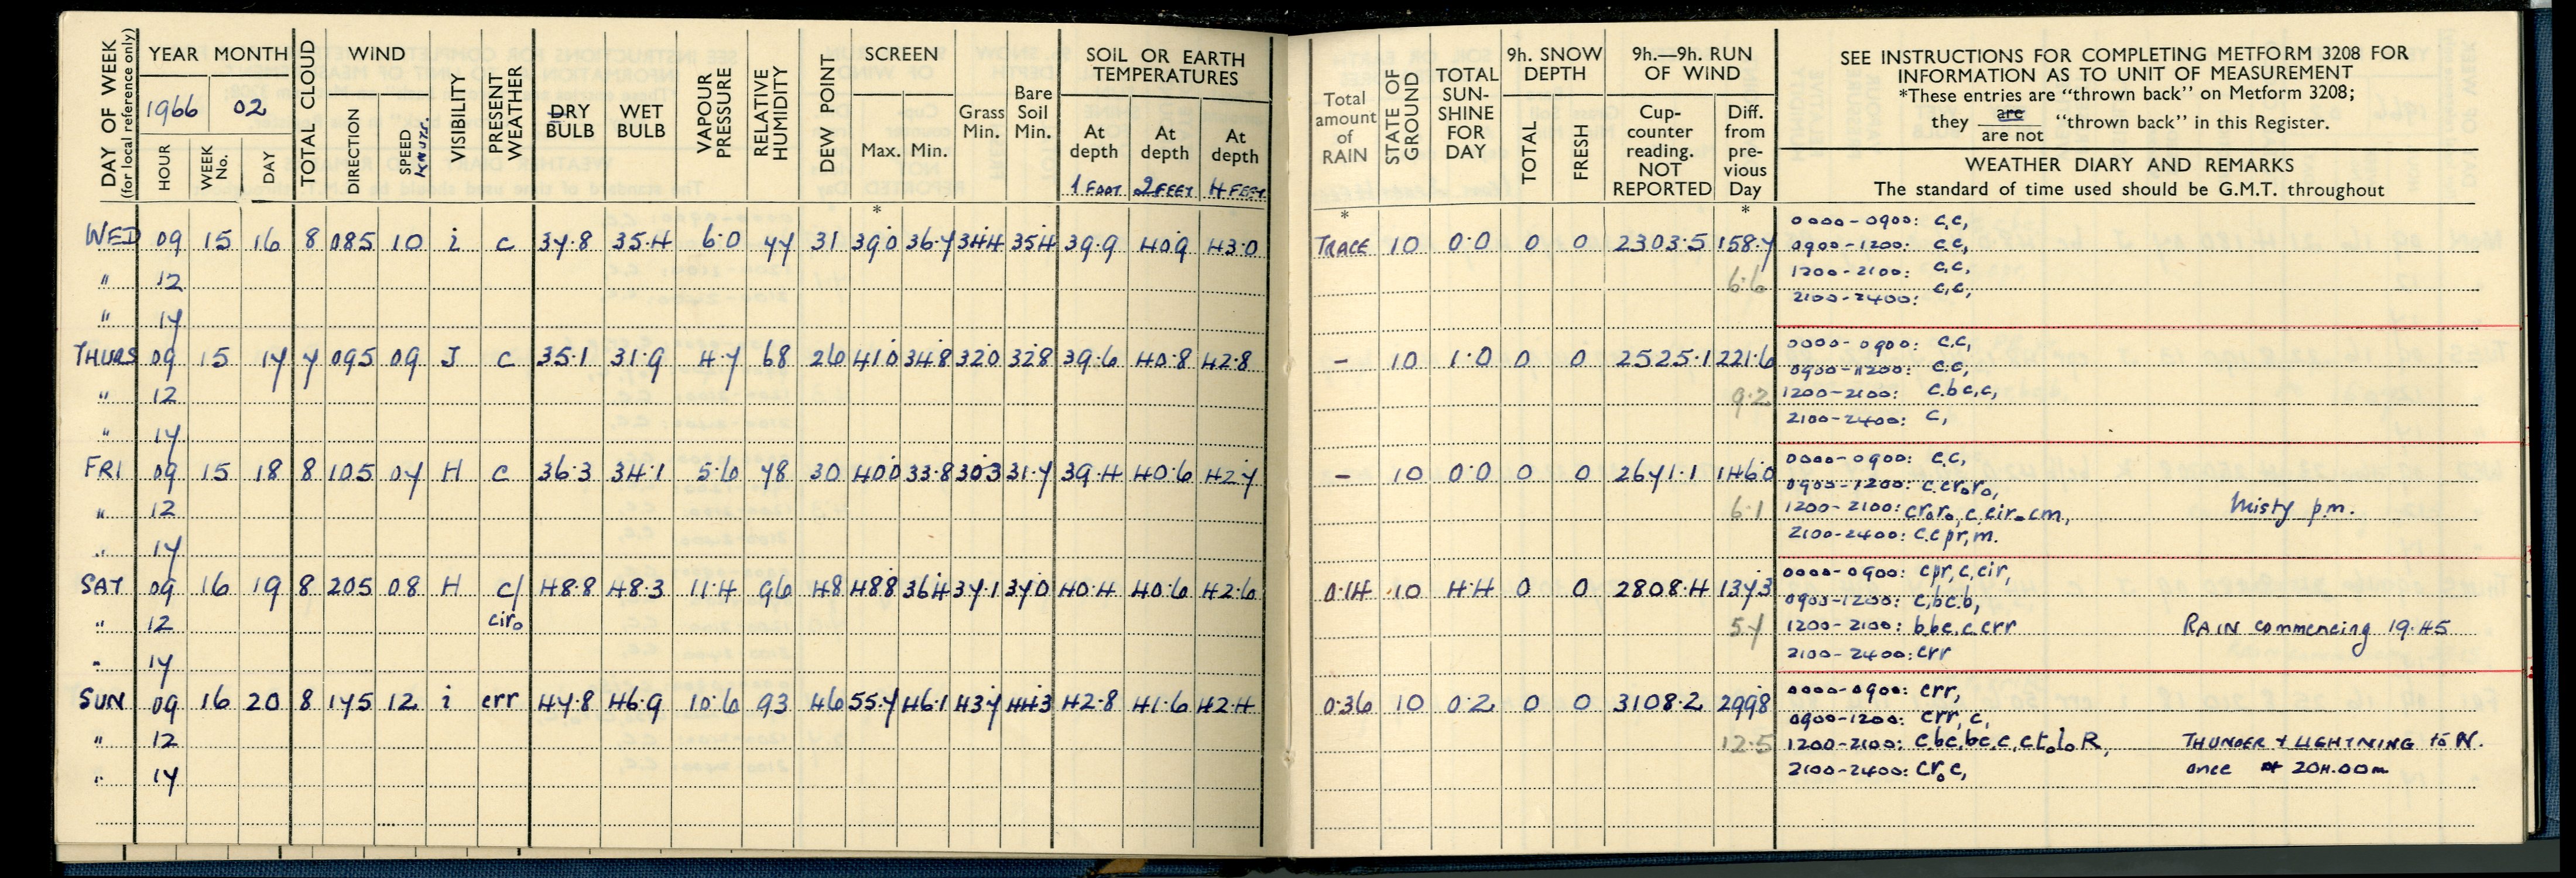 DAY OF WEEK (for local reference only) YEAR MONTH TOTAL CLOUD WIND VISIBILITY PRESENT WEATHER DRY BULB WET BULB VAPOUR PRESSURE RELATIVE HUMIDITY DEW POINT SCREEN Grass Min. Bare Soil Min. SOIL OR EARTH TEMPERATURES
1966 02
HOUR WEEK No. DAY DIRECTION SPEED KNOTS. Max. Min. At depth At depth At depth
1 FOOT 2 FEET 4 FEET
*
WED 09 15 16 8 085 10 i c 37.8 35.4 6.0 77 31 39.0 36.7 34.4 35.4 39.9 40.9 43.0
" 12
" 17
THURS 09 15 17 7 095 09 J c 35.1 31.9 4.7 68 26 41.0 34.8 32.0 32.8 39.6 40.8 42.8
" 12
" 17
FRI 09 15 18 8 105 07 H c 36.3 34.1 5.6 78 30 40.0 33.8 30.3 31.7 39.4 40.6 42.7
" 12
" 17
SAT 09 16 19 8 205 08 H c/ 48.8 48.3 11.4 96 48 48.8 36.4 37.1 37.0 40.4 40.6 42.6
" 12 ciro
" 17
SUN 09 16 20 8 175 12 i err 47.8 46.9 10.6 93 46 55.7 46.1 43.7 44.3 42.8 41.6 42.4
" 12
" 17
Total amount of RAIN STATE OF GROUND TOTAL SUN-SHINE FOR DAY 9h. SNOW DEPTH 9h.—9h. RUN OF WIND
TOTAL FRESH Cup-counter reading. NOT REPORTED Diff. from pre-vious Day
SEE INSTRUCTIONS FOR COMPLETING METFORM 3208 FOR
INFORMATION AS TO UNIT OF MEASUREMENT
*These entries are "thrown back" on Metform 3208;
they are / are not "thrown back" in this Register.
WEATHER DIARY AND REMARKS
The standard of time used should be G.M.T. throughout
* *
TRACE 10 0.0 0 0 2303.5 158.7 0000-0900: c,c,
0900-1200: c,c,
6.6 1200-2100: c,c,
2100-2400: c,c,
- 10 1.0 0 0 2525.1 221.6 0000-0900: c.c,
0900-1200: c.c,
9.2 1200-2100: c.bc,c,
2100-2400: c,
- 10 0.0 0 0 2671.1 146.0 0000-0900: c.c,
0900-1200: c.croro,
6.1 1200-2100: croro, c, cir.cm, Misty p.m.
2100-2400: c.c pr, m.
0.14 10 4.4 0 0 2808.4 137.3 0000-0900: cpr, c, cir,
0900-1200: c,bc.b,
5.7 1200-2100: b bc.c.crr RAIN commencing 19.45
2100-2400: crr
0.36 10 0.2 0 0 3108.2 299.8 0000-0900: crr,
0900-1200: crr, c,
12.5 1200-2100: c bc,bc,c,ctoloR, THUNDER + LIGHTNING to N.
2100-2400: croc, once at 20H.00m